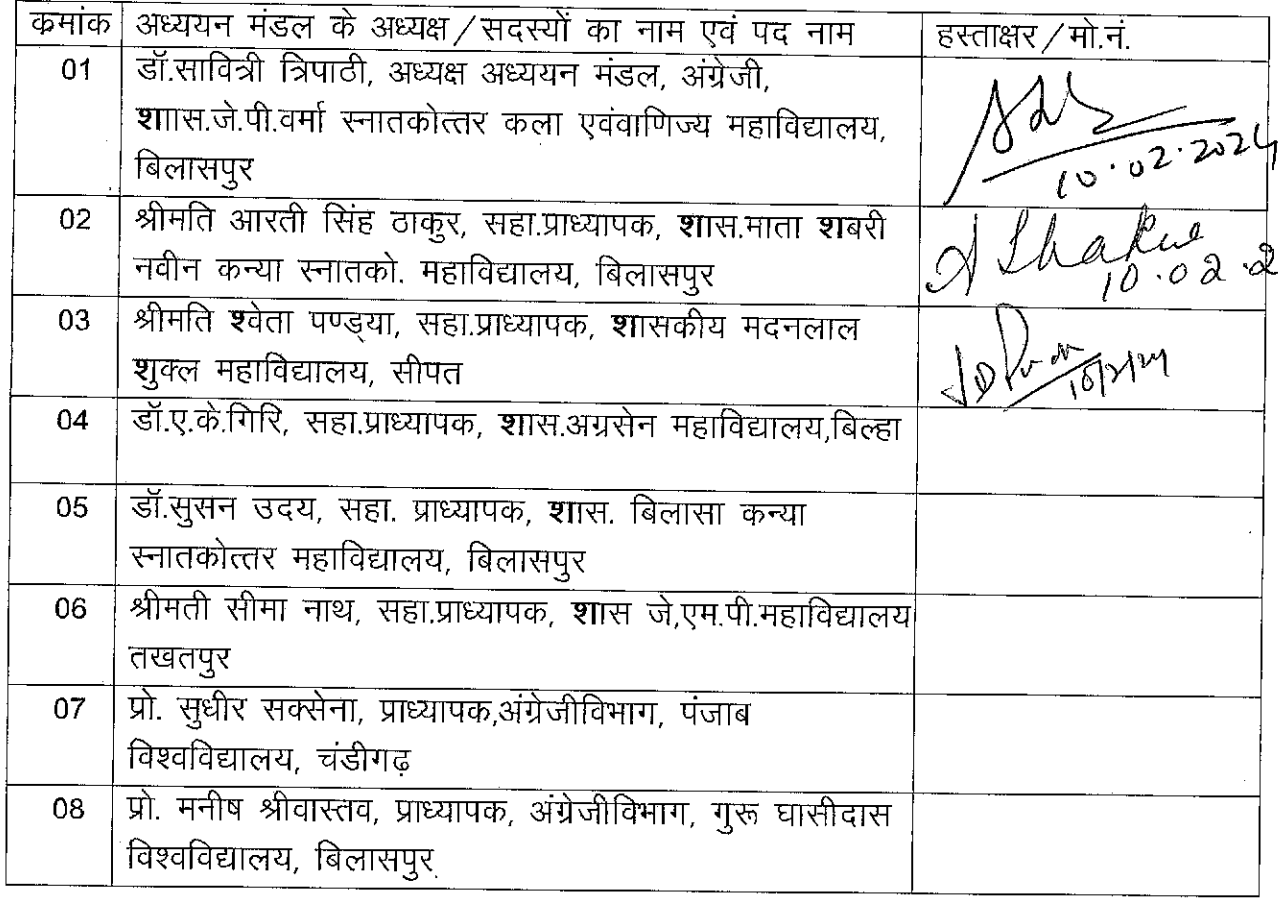 क्रमांक अध्ययन मंडल के अध्यक्ष/सदस्यों का नाम एवं पद नाम हस्ताक्षर/मो.नं.
01 डॉ.सावित्री त्रिपाठी, अध्यक्ष अध्ययन मंडल, अंग्रेजी,
शाास.जे.पी.वर्मा स्नातकोत्तर कला एवंवाणिज्य महाविद्यालय,
बिलासपुर
10.02.2024
02 श्रीमति आरती सिंह ठाकुर, सहा.प्राध्यापक, शास.माता शबरी
नवीन कन्या स्नातको. महाविद्यालय, बिलासपुर
A Thakur
10.02.2
03 श्रीमति श्वेता पण्ड्या, सहा.प्राध्यापक, शासकीय मदनलाल
शुक्ल महाविद्यालय, सीपत
10/2/24
04 डॉ.ए.के.गिरि, सहा.प्राध्यापक, शास.अग्रसेन महाविद्यालय,बिल्हा
05 डॉ.सुसन उदय, सहा. प्राध्यापक, शास. बिलासा कन्या
स्नातकोत्तर महाविद्यालय, बिलासपुर
06 श्रीमती सीमा नाथ, सहा.प्राध्यापक, शास जे,एम.पी.महाविद्यालय
तखतपुर
07 प्रो. सुधीर सक्सेना, प्राध्यापक,अंग्रेजीविभाग, पंजाब
विश्वविद्यालय, चंडीगढ़
08 प्रो. मनीष श्रीवास्तव, प्राध्यापक, अंग्रेजीविभाग, गुरू घासीदास
विश्वविद्यालय, बिलासपुर